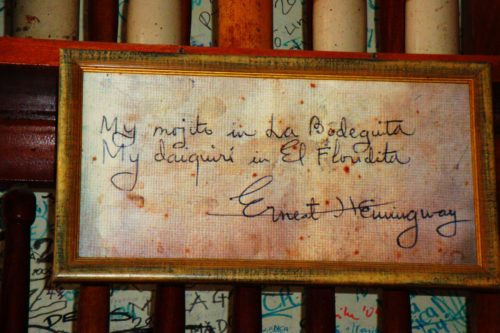 My mojito in La Bodeguita
My daiquirí in El Floridita
Ernest Hemingway